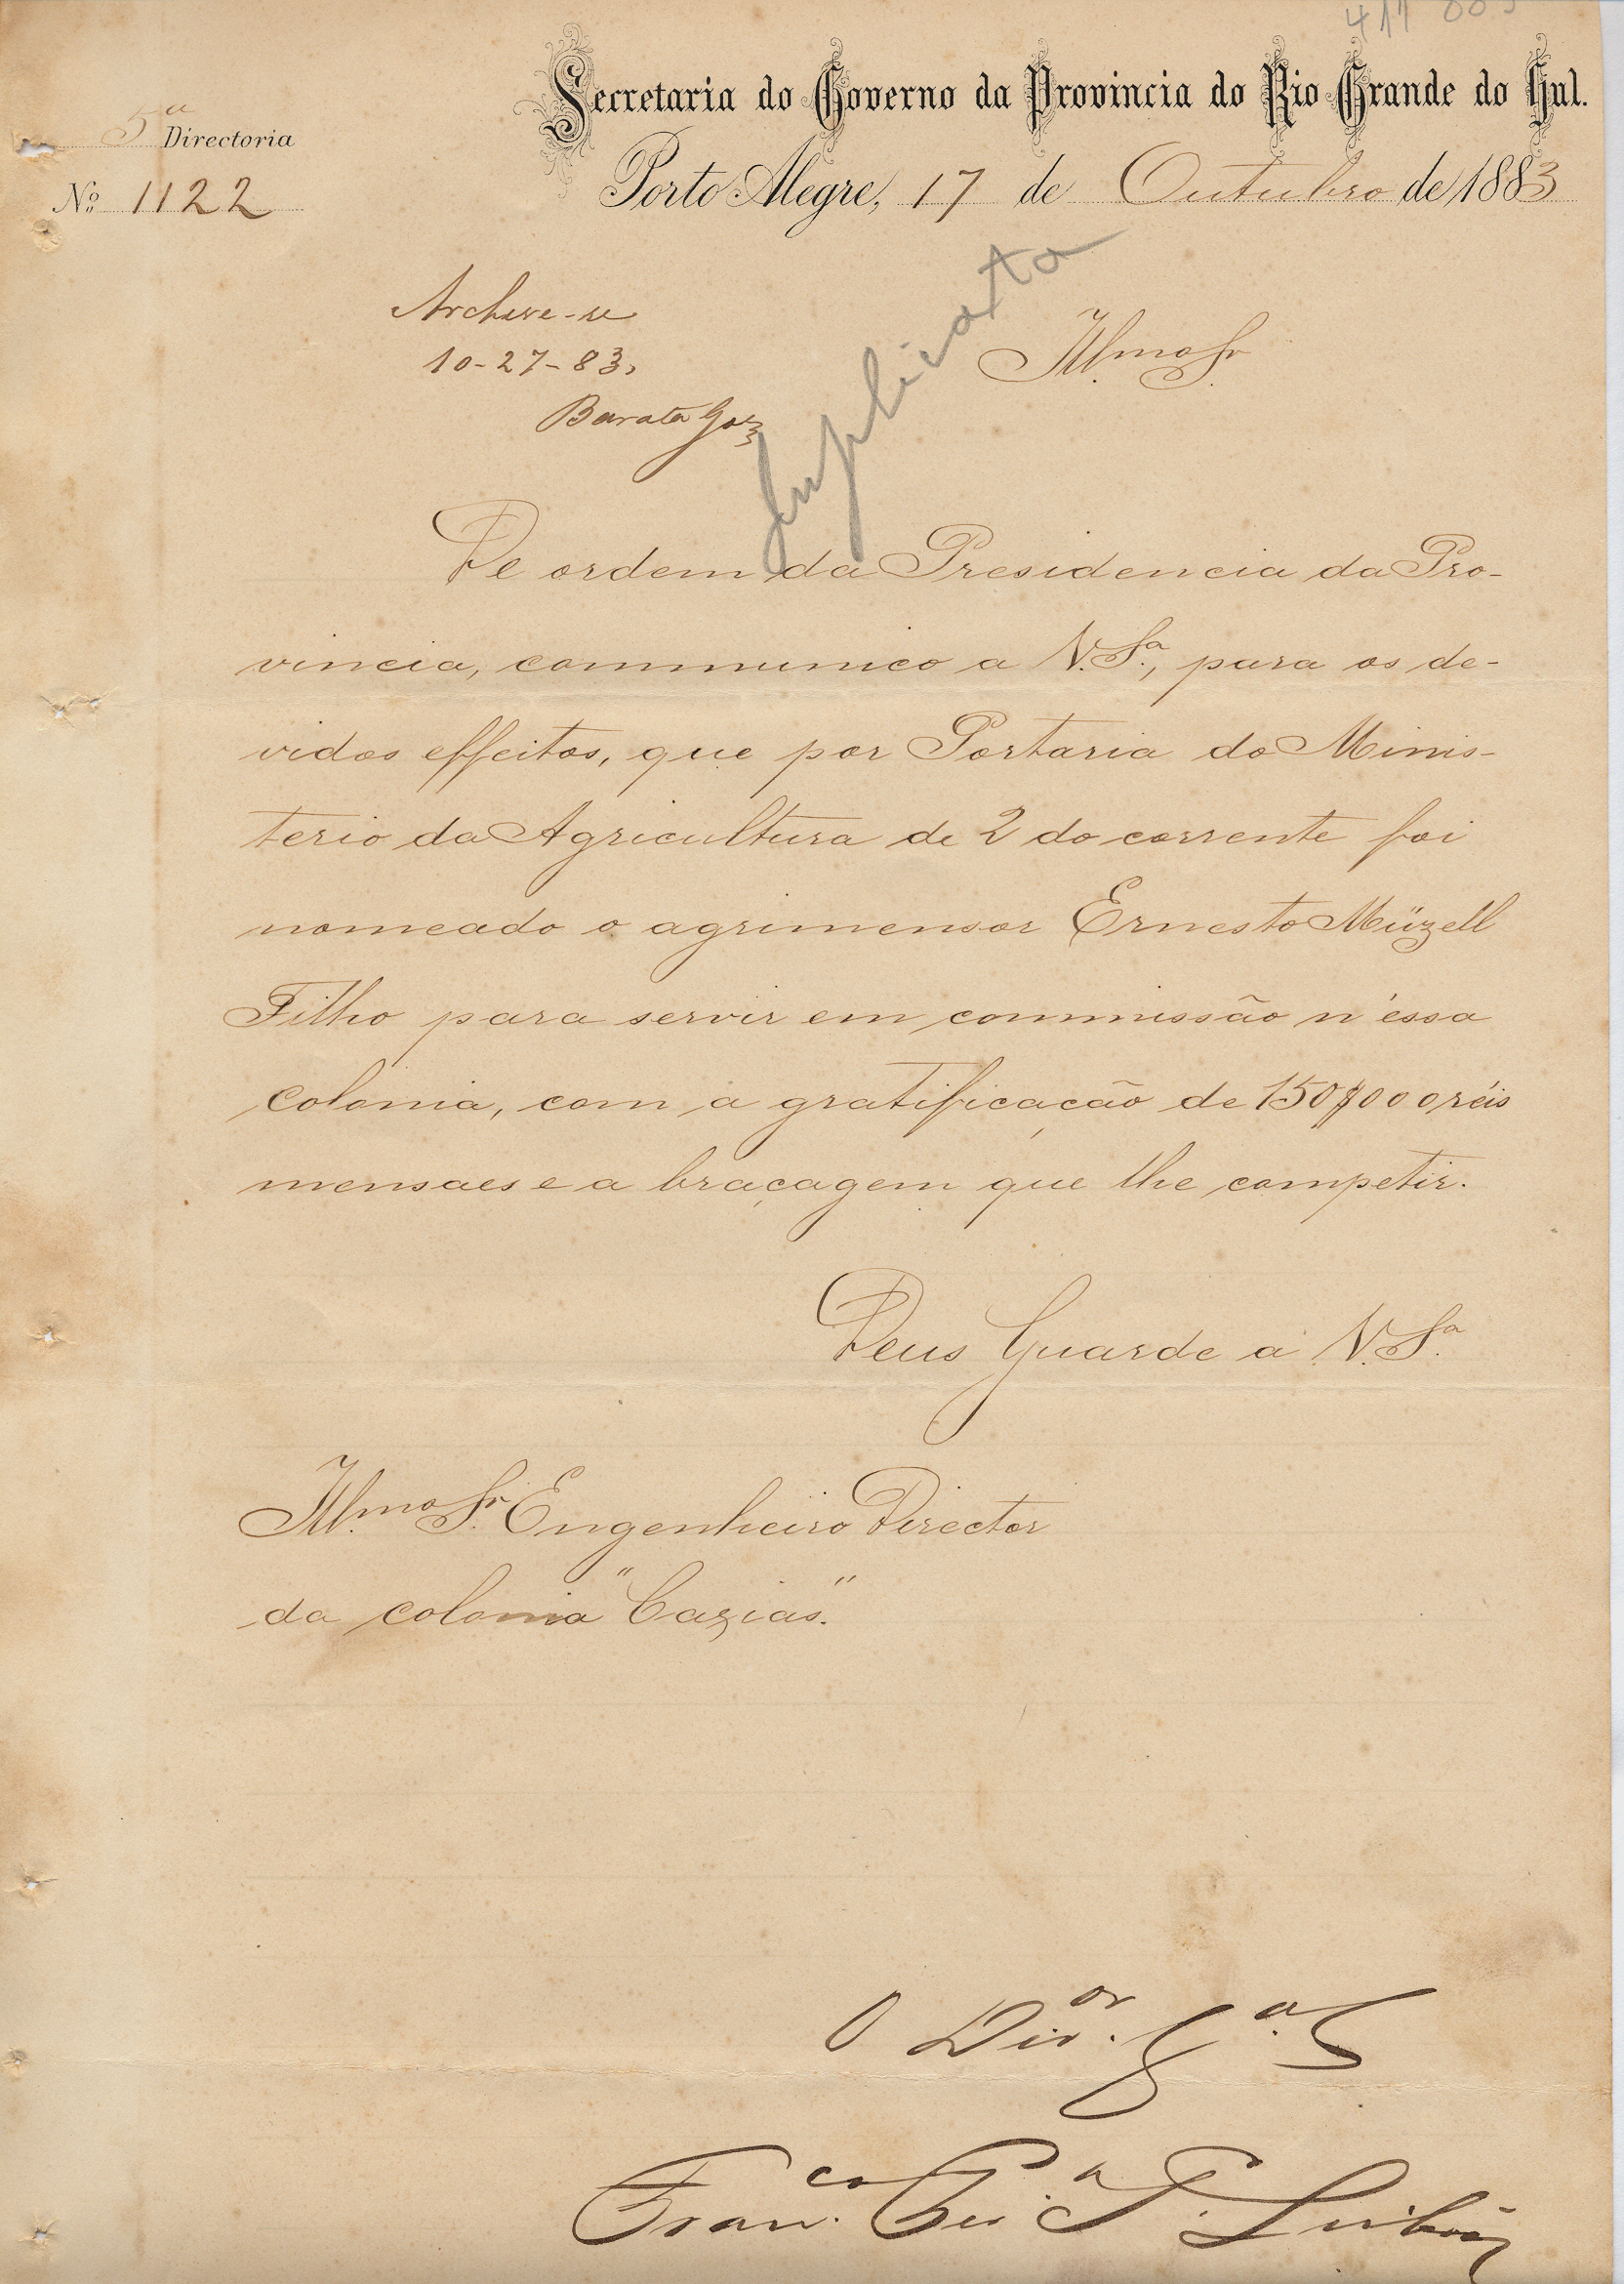 Secretaria do Governo da Provincia do Rio Grande do Sul.
5ª Directoria
Nº 1122
Porto Alegre, 17 de Outubro de 1883
Duplicata
Archive-se
10-27-83,
Barata Goz
Illmo Sr.
De ordem da Presidencia da Pro-
vincia, communico a V. Sª., para os de-
vidos effeitos, que por Portaria do Minis-
terio da Agricultura de 2 do corrente foi
nomeado o agrimensor Ernesto Müzell
Filho para servir em commissão n'essa
colonia, com a gratificação de 150$000 réis
mensaes e a braçagem que lhe competir.
Deus Guarde a V. Sª.
Illmo Sr. Engenheiro Director
da colonia "Caxias".
O Dir.or
Fran.co